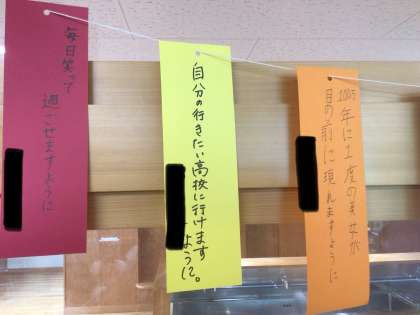 毎日笑って
過ごせますように
自分の行きたい高校に行けます
ように。
1000年に1度の美女が
目の前に現れますように